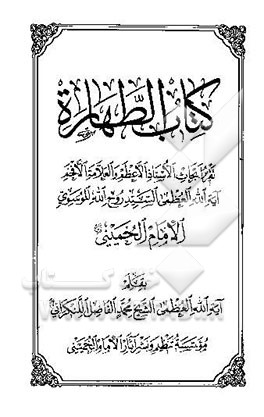 كتاب الطهارة
تقرير أبحاث الأستاذ الأعظم والعلامة الأفخم
آية الله العظمى السيد روح الله الموسوي
الإمام الخميني
بقلم
آية الله العظمى الشيخ محمد الفاضل اللنكراني
مؤسسة تنظيم ونشر آثار الإمام الخميني